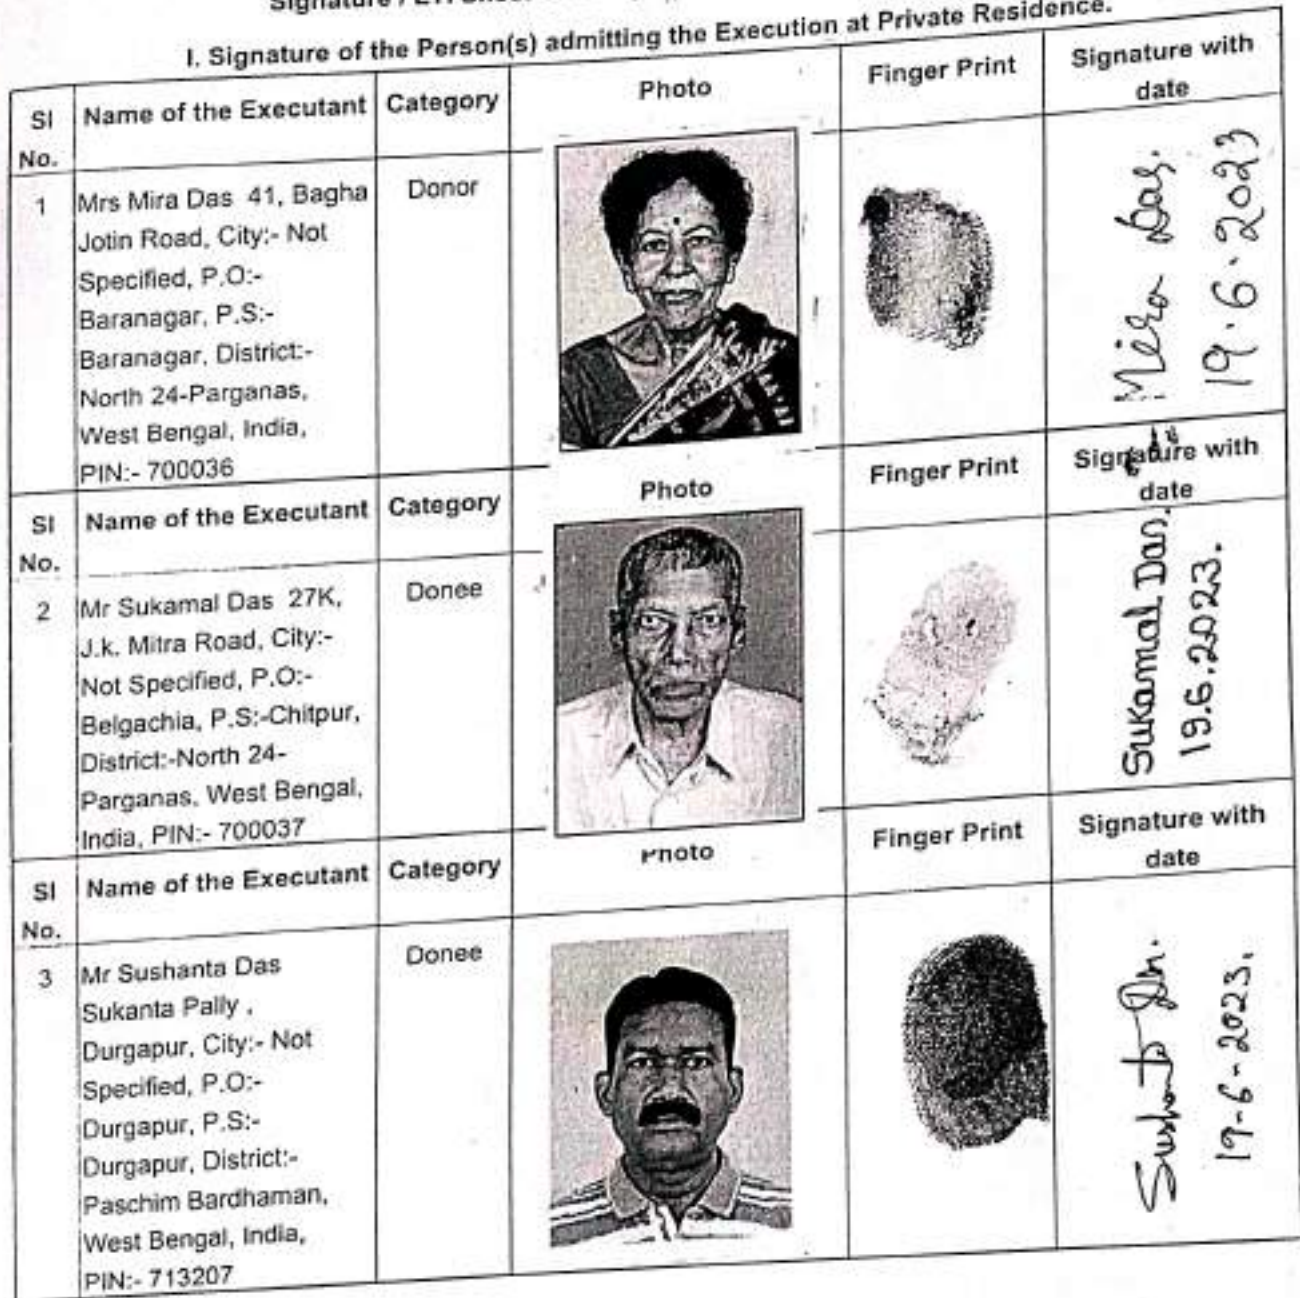 Signature /
I. Signature of the Person(s) admitting the Execution at Private Residence.
Sl No. Name of the Executant Category Photo Finger Print Signature with date
1 Mrs Mira Das 41, Bagha Donor
Jotin Road, City:- Not
Specified, P.O:-
Baranagar, P.S:-
Baranagar, District:-
North 24-Parganas,
West Bengal, India,
PIN:- 700036
Mira Das.
19.6.2023
Sl No. Name of the Executant Category Photo Finger Print Signature with date
2 Mr Sukamal Das 27K, Donee
J.k. Mitra Road, City:-
Not Specified, P.O:-
Belgachia, P.S:-Chitpur,
District:-North 24-
Parganas, West Bengal,
India, PIN:- 700037
Sukamal Das.
19.6.2023.
Sl No. Name of the Executant Category Photo Finger Print Signature with date
3 Mr Sushanta Das Donee
Sukanta Pally ,
Durgapur, City:- Not
Specified, P.O:-
Durgapur, P.S:-
Durgapur, District:-
Paschim Bardhaman,
West Bengal, India,
PIN:- 713207
19-6-2023.